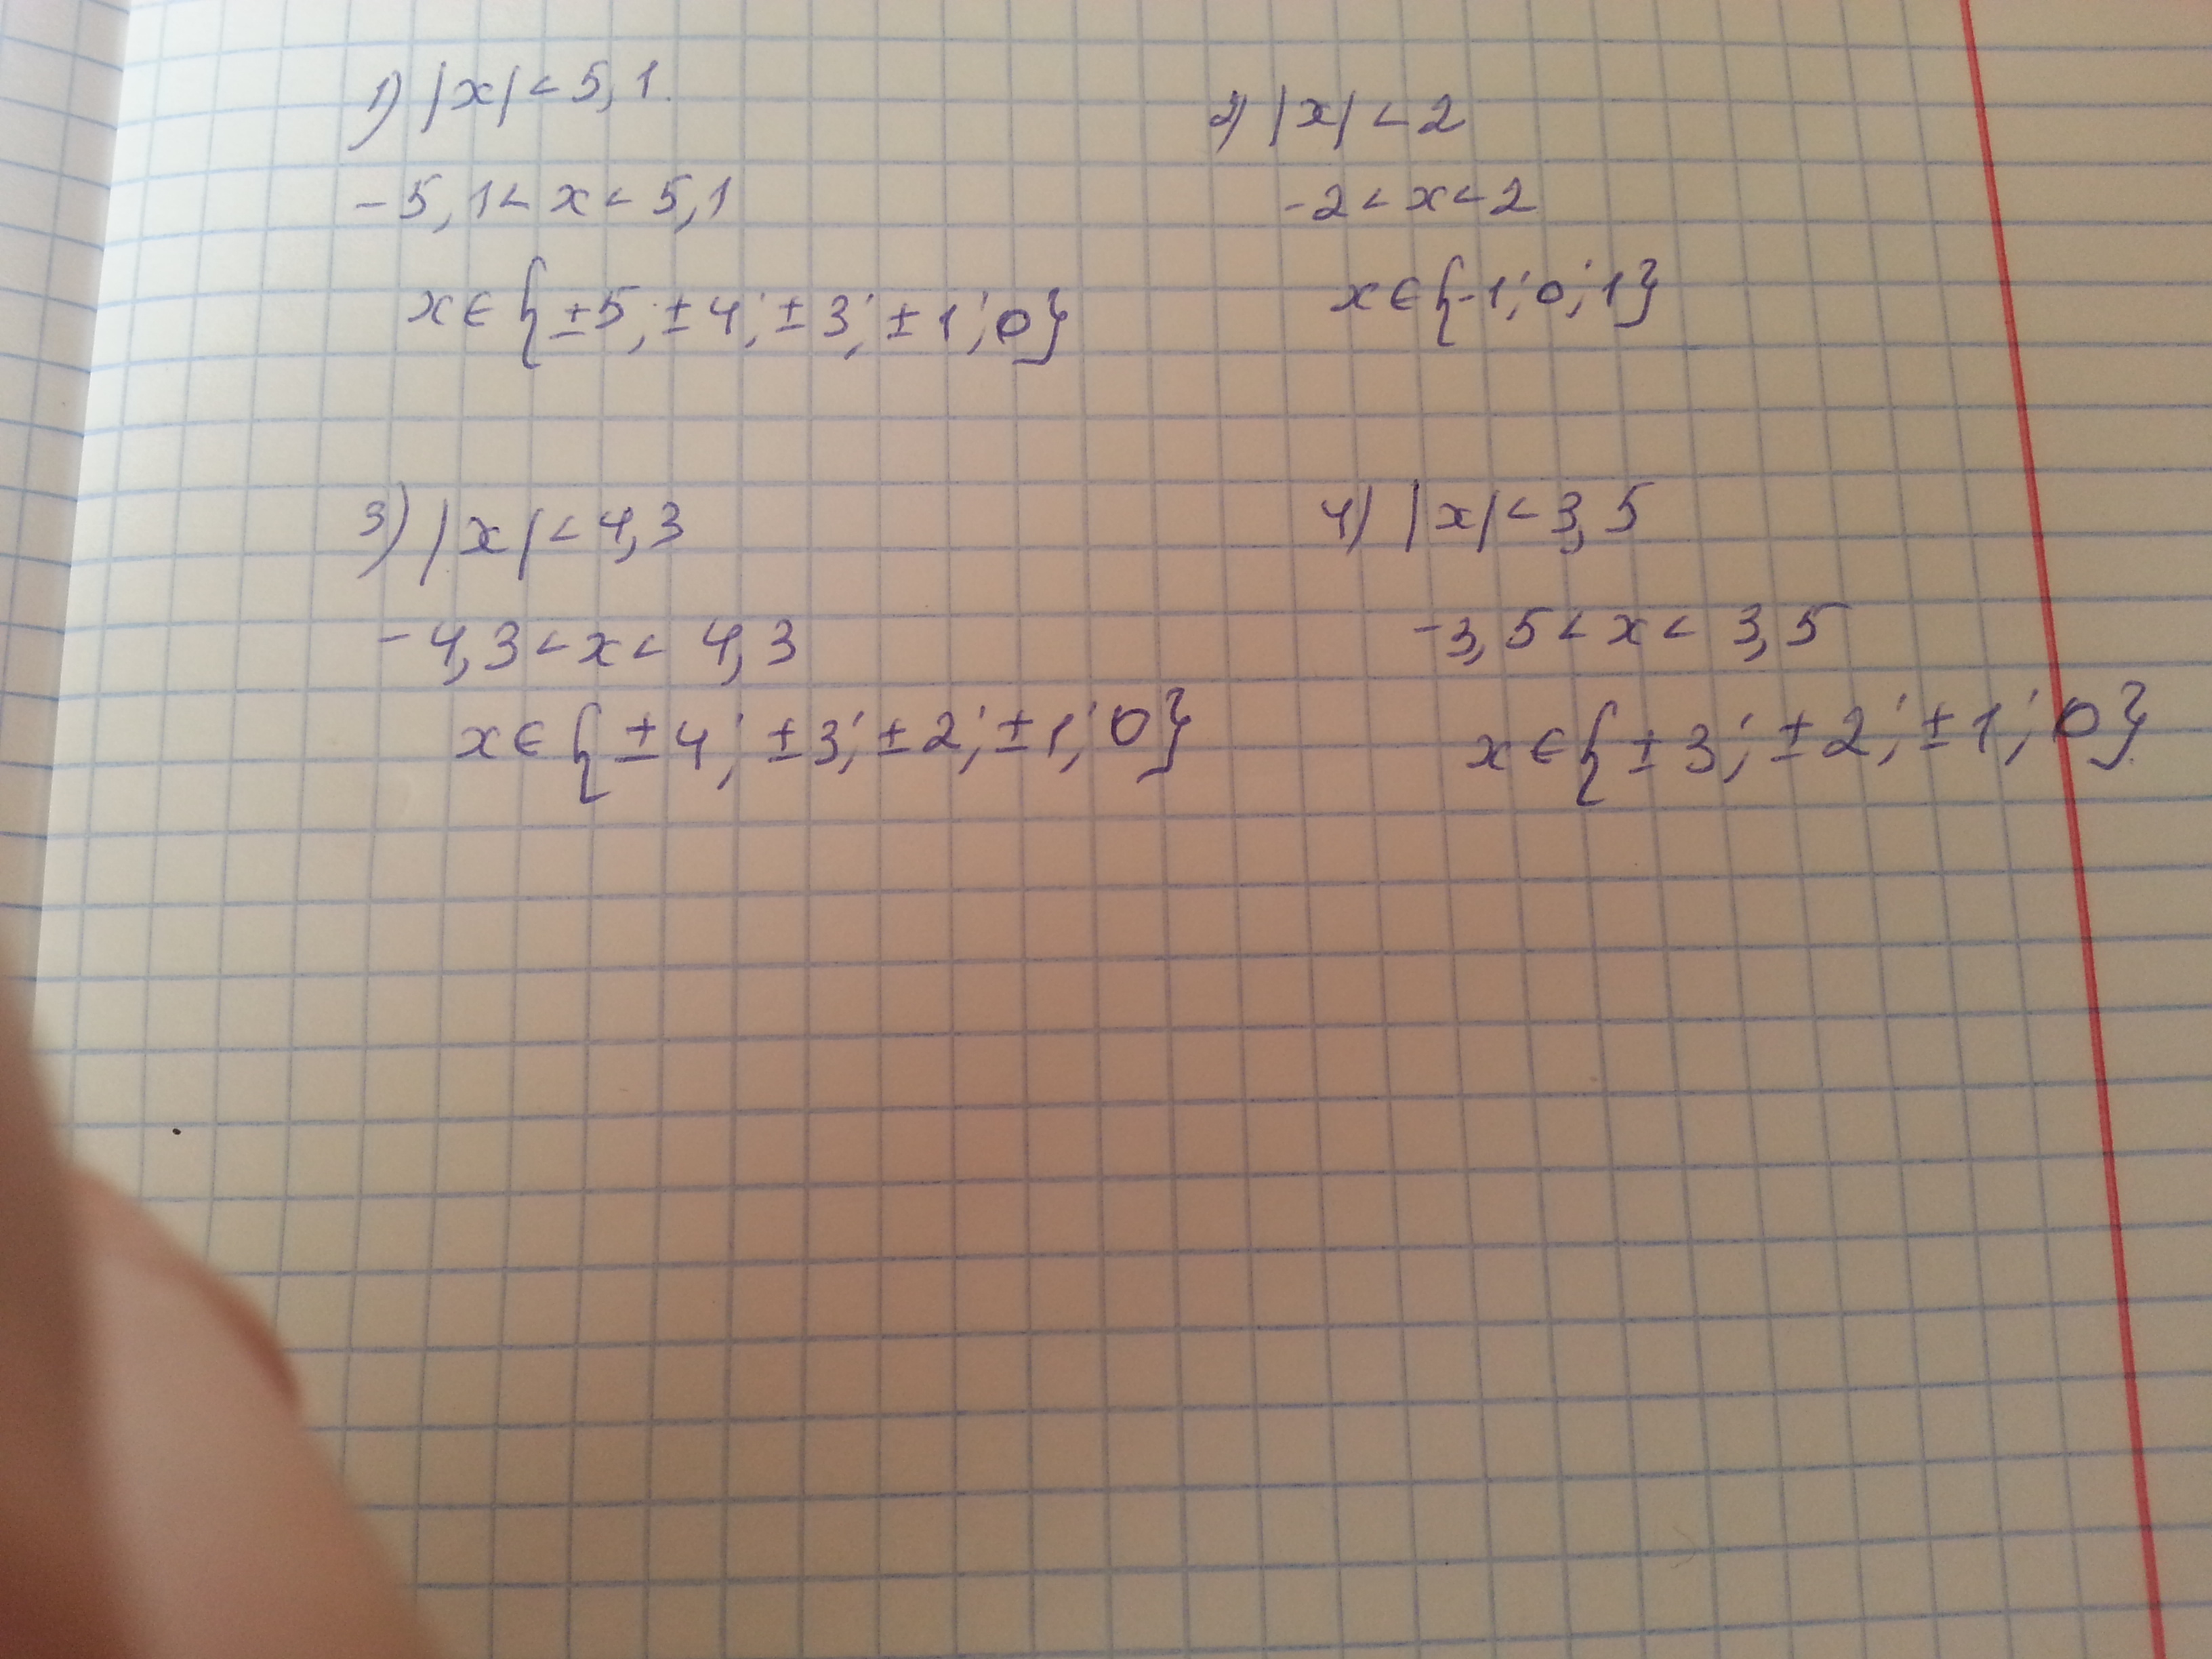 1) |x| < 5,1
-5,1 < x < 5,1
x ∈ {±5; ±4; ±3; ±1; 0}
2) |x| < 2
-2 < x < 2
x ∈ {-1; 0; 1}
3) |x| < 4,3
-4,3 < x < 4,3
x ∈ {±4; ±3; ±2; ±1; 0}
4) |x| < 3,5
-3,5 < x < 3,5
x ∈ {±3; ±2; ±1; 0}